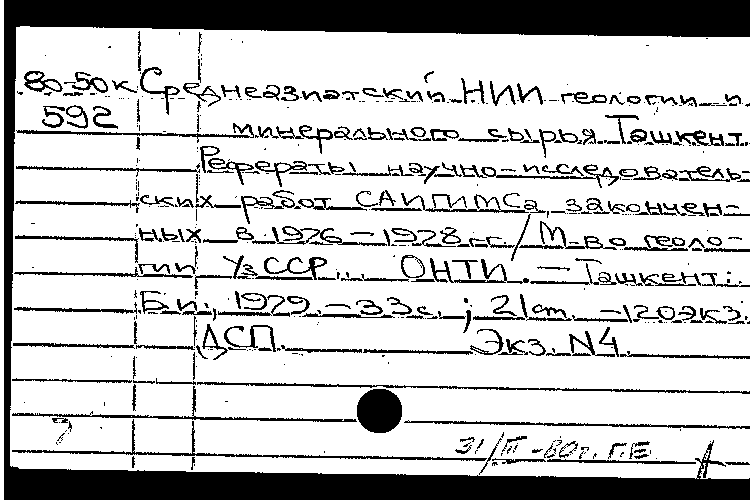 80-50к Среднеазиатский НИИ геологии и
592 минерального сырья Ташкент.
Рефераты научно-исследователь-
ских работ САИГИМСа, закончен-
ных в 1976-1978 гг. / М-во геоло-
гии УзССР... ОНТИ. - Ташкент:
Б.и., 1979. - 33 с. ; 21 cm. - 120 экз.
ДСП. Экз. N4.
31/III-80г. Г.Е.